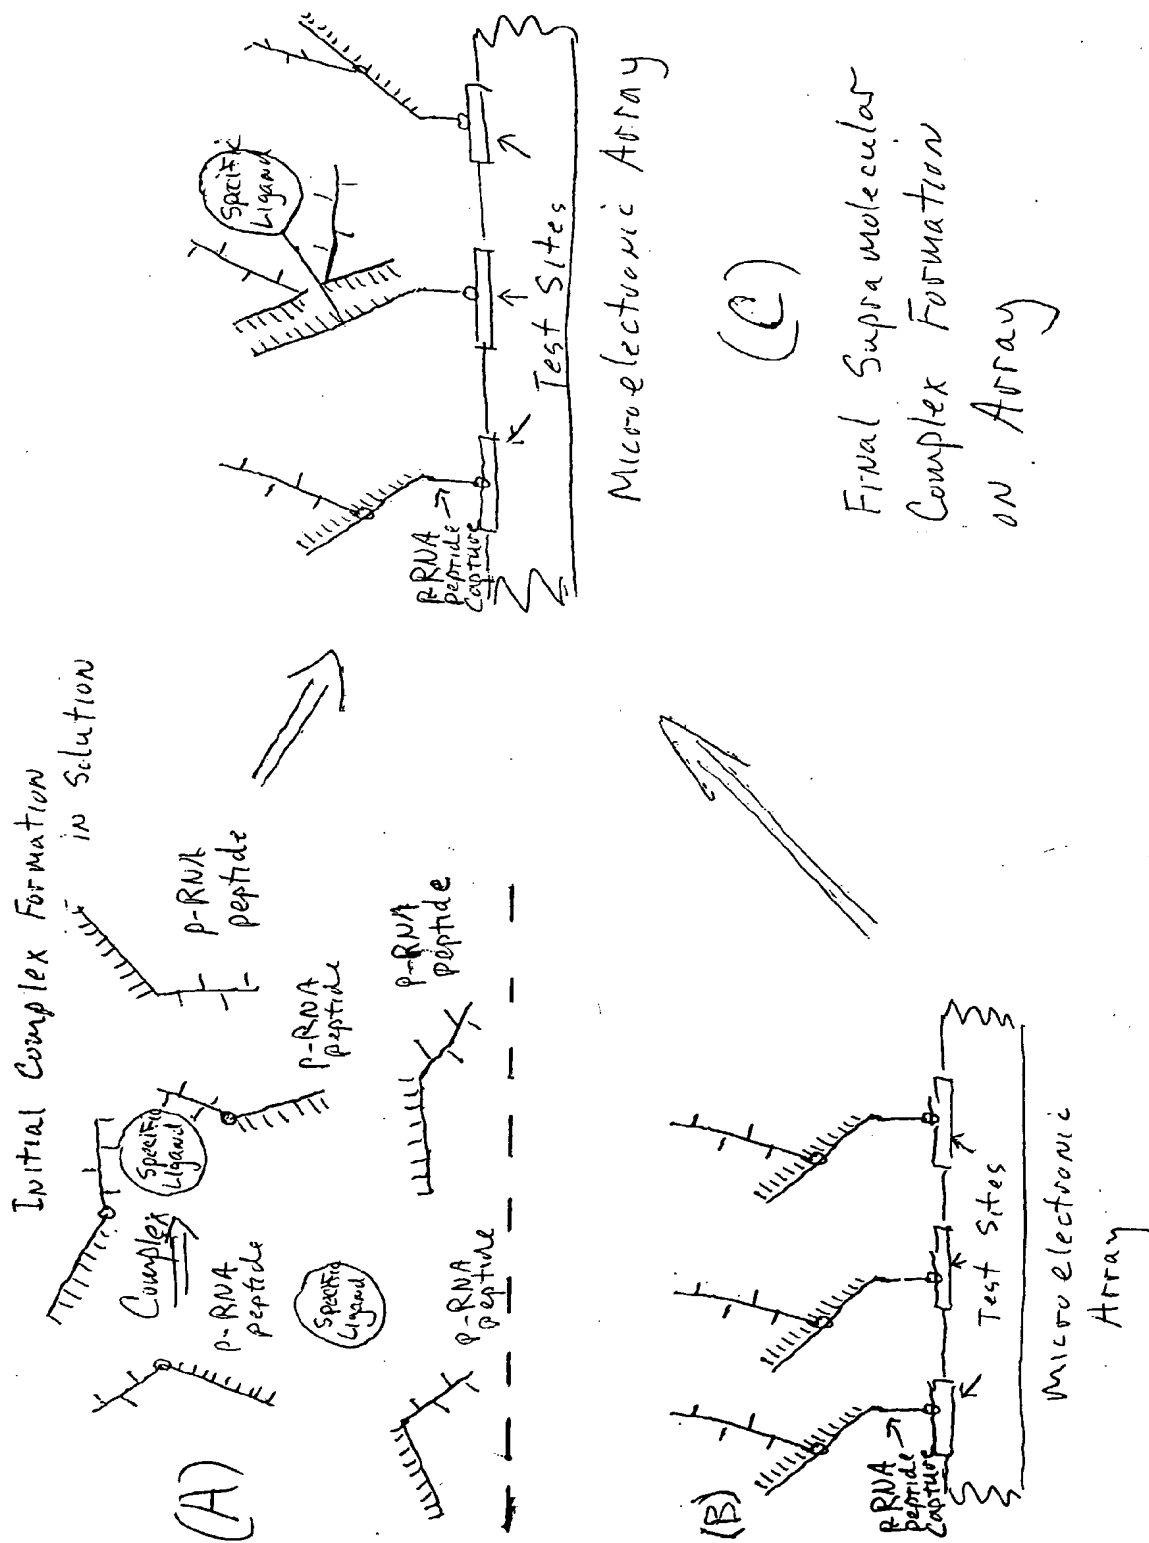 Initial Complex Formation
in Solution
(A)
Complex
Specific
Ligand
p-RNA
peptide
p-RNA
peptide
p-RNA
peptide
Specific
Ligand
p-RNA
peptide
p-RNA
peptide
(B)
p-RNA
peptide
Capture
Test Sites
Microelectronic
Array
Specific
Ligand
p-RNA
peptide
Capture
Test Sites
Microelectronic Array
(C)
Final Supramolecular
Complex Formation
on Array